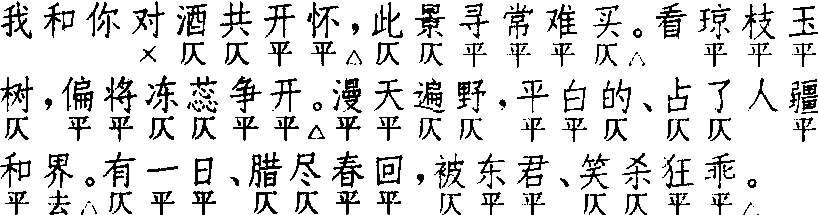 我和你对酒共开怀，此景寻常难买。看琼枝玉
× 仄 仄 平 平 △ 仄 仄 平 平 平 仄 △ 平 平 平
树，偏将冻蕊争开。漫天遍野，平白的、占了人疆
仄 平 平 仄 仄 平 平 △ 平 平 仄 仄 平 平 仄 仄 仄 平
和界。有一日、腊尽春回，被东君、笑杀狂乖。
平 去 △ 仄 平 平 仄 仄 平 平 仄 平 平 仄 仄 平 平 △